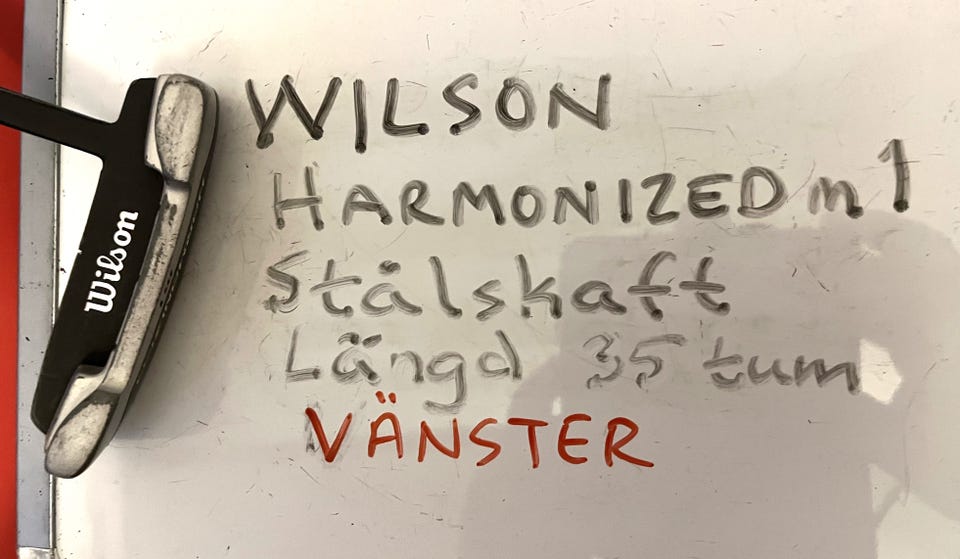 Wilson
WILSON
HARMONIZED m1
Stålskaft
Längd 35 tum
VÄNSTER